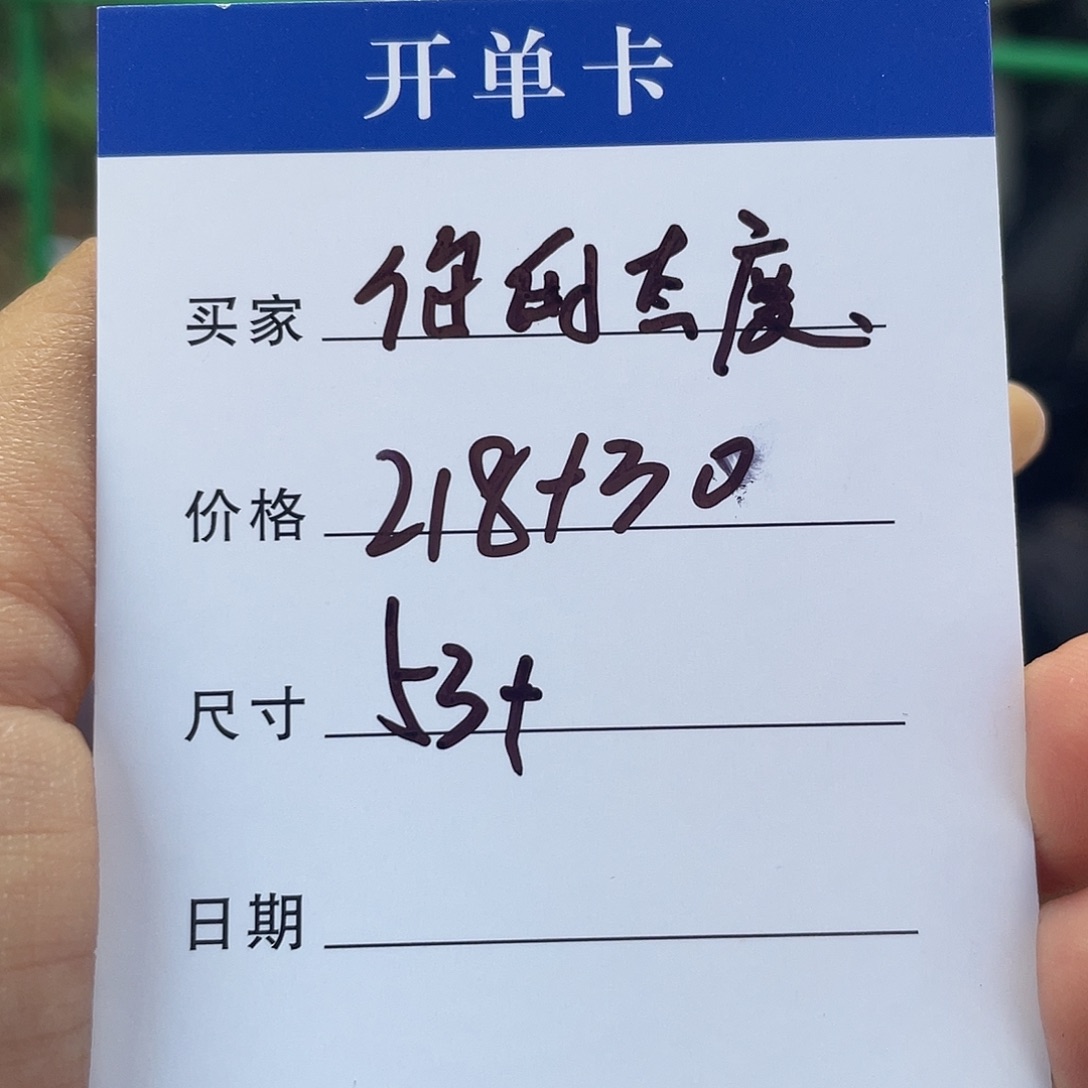 开单卡
买家 度、
价格 218+30
尺寸 53+
日期